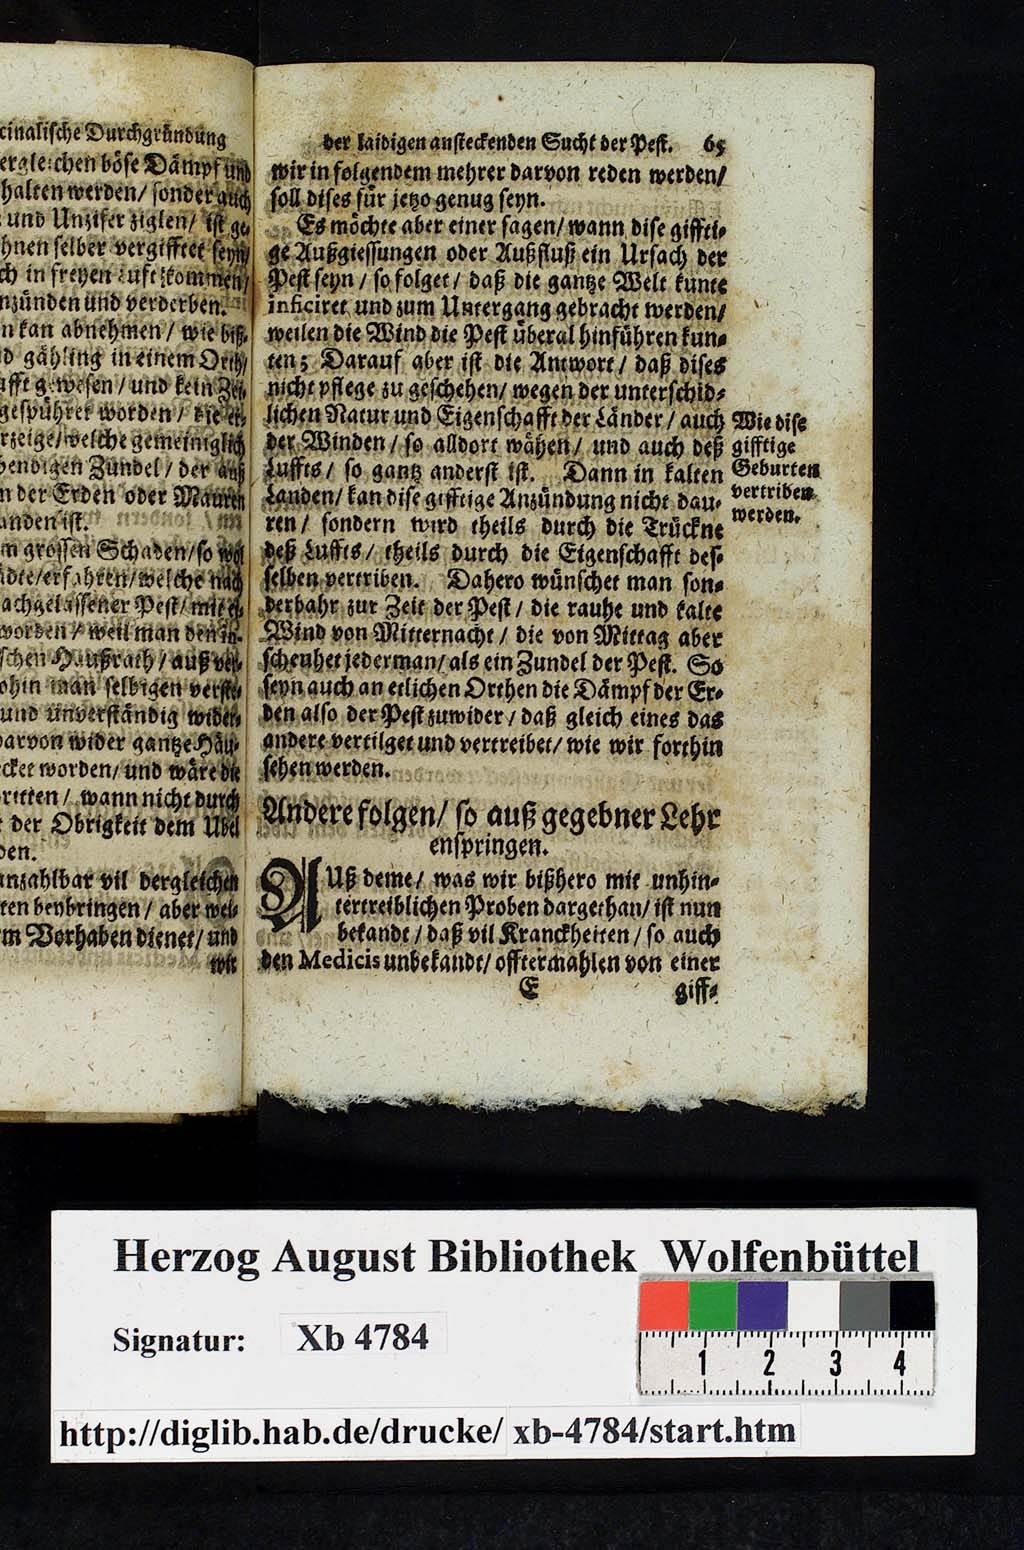 cinalische Durchgründung
ergleichen böse Dämpf und
halten werden/ sonder auch
und Unzifer ziglen/ ist ge-
hnen selber vergifftet seyn/
ch in freyen Lufft kommen/
nzünden und verderben.
n kan abnehmen/ wie biß-
d gähling in einem Orth/
afft gewesen/ und kein Zei-
gespühret worden/ die er-
rzeige/ welche gemeiniglich
bendigen Zundel/ der auß
n der Erden oder Mauren
anden ist.
m grossen Schaden/ so wol
ädte/ erfahren/ welche nach
achgelassener Pest/ mit ei-
worden/ weil man den in-
schen Haußrath/ auß ver-
ohin man selbigen verste-
und unverständig wider-
darvon wider gantze Häu-
cket worden/ und wäre die
britten/ wann nicht durch
t der Obrigkeit dem Ubel
den.
unzahlbar vil dergleichen
ten beybringen/ aber wei-
rm Vorhaben dienet/ und
wir
der laidigen ansteckenden Sucht der Pest. 65
wir in folgendem mehrer darvon reden werden/
soll dises für jetzo genug seyn.
Es möchte aber einer sagen/ wann dise giffti-
ge Außgiessungen oder Außfluß ein Ursach der
Pest seyn/ so folget/ daß die gantze Welt kunte
inficiret und zum Untergang gebracht werden/
weilen die Wind die Pest überal hinführen kun-
ten; Darauf aber ist die Antwort/ daß dises
nicht pflege zu geschehen/ wegen der unterschid-
lichen Natur und Eigenschafft der Länder/ auch
der Winden/ so alldort wähen/ und auch deß
Luffts/ so gantz anderst ist. Dann in kalten
Landen/ kan dise gifftige Anzündung nicht dau-
ren/ sondern wird theils durch die Trückne
deß Luffts/ theils durch die Eigenschafft des-
selben vertriben. Dahero wünschet man son-
derbahr zur Zeit der Pest/ die rauhe und kalte
Wind von Mitternacht/ die von Mittag aber
scheuhet jederman/ als ein Zundel der Pest. So
seyn auch an etlichen Orthen die Dämpf der Er-
den also der Pest zuwider/ daß gleich eines das
andere vertilget und vertreibet/ wie wir forthin
sehen werden.
Wie dise
gifftige
Geburten
vertriben
werden.
Andere folgen/ so auß gegebner Lehr
enspringen.
AUß deme/ was wir bißhero mit unhin-
tertreiblichen Proben dargethan/ ist nun
bekandt/ daß vil Kranckheiten/ so auch
den Medicis unbekandt/ offtermahlen von einer
E giff-
Herzog August Bibliothek Wolfenbüttel
Signatur: Xb 4784
1 2 3 4
http://diglib.hab.de/drucke/ xb-4784/start.htm